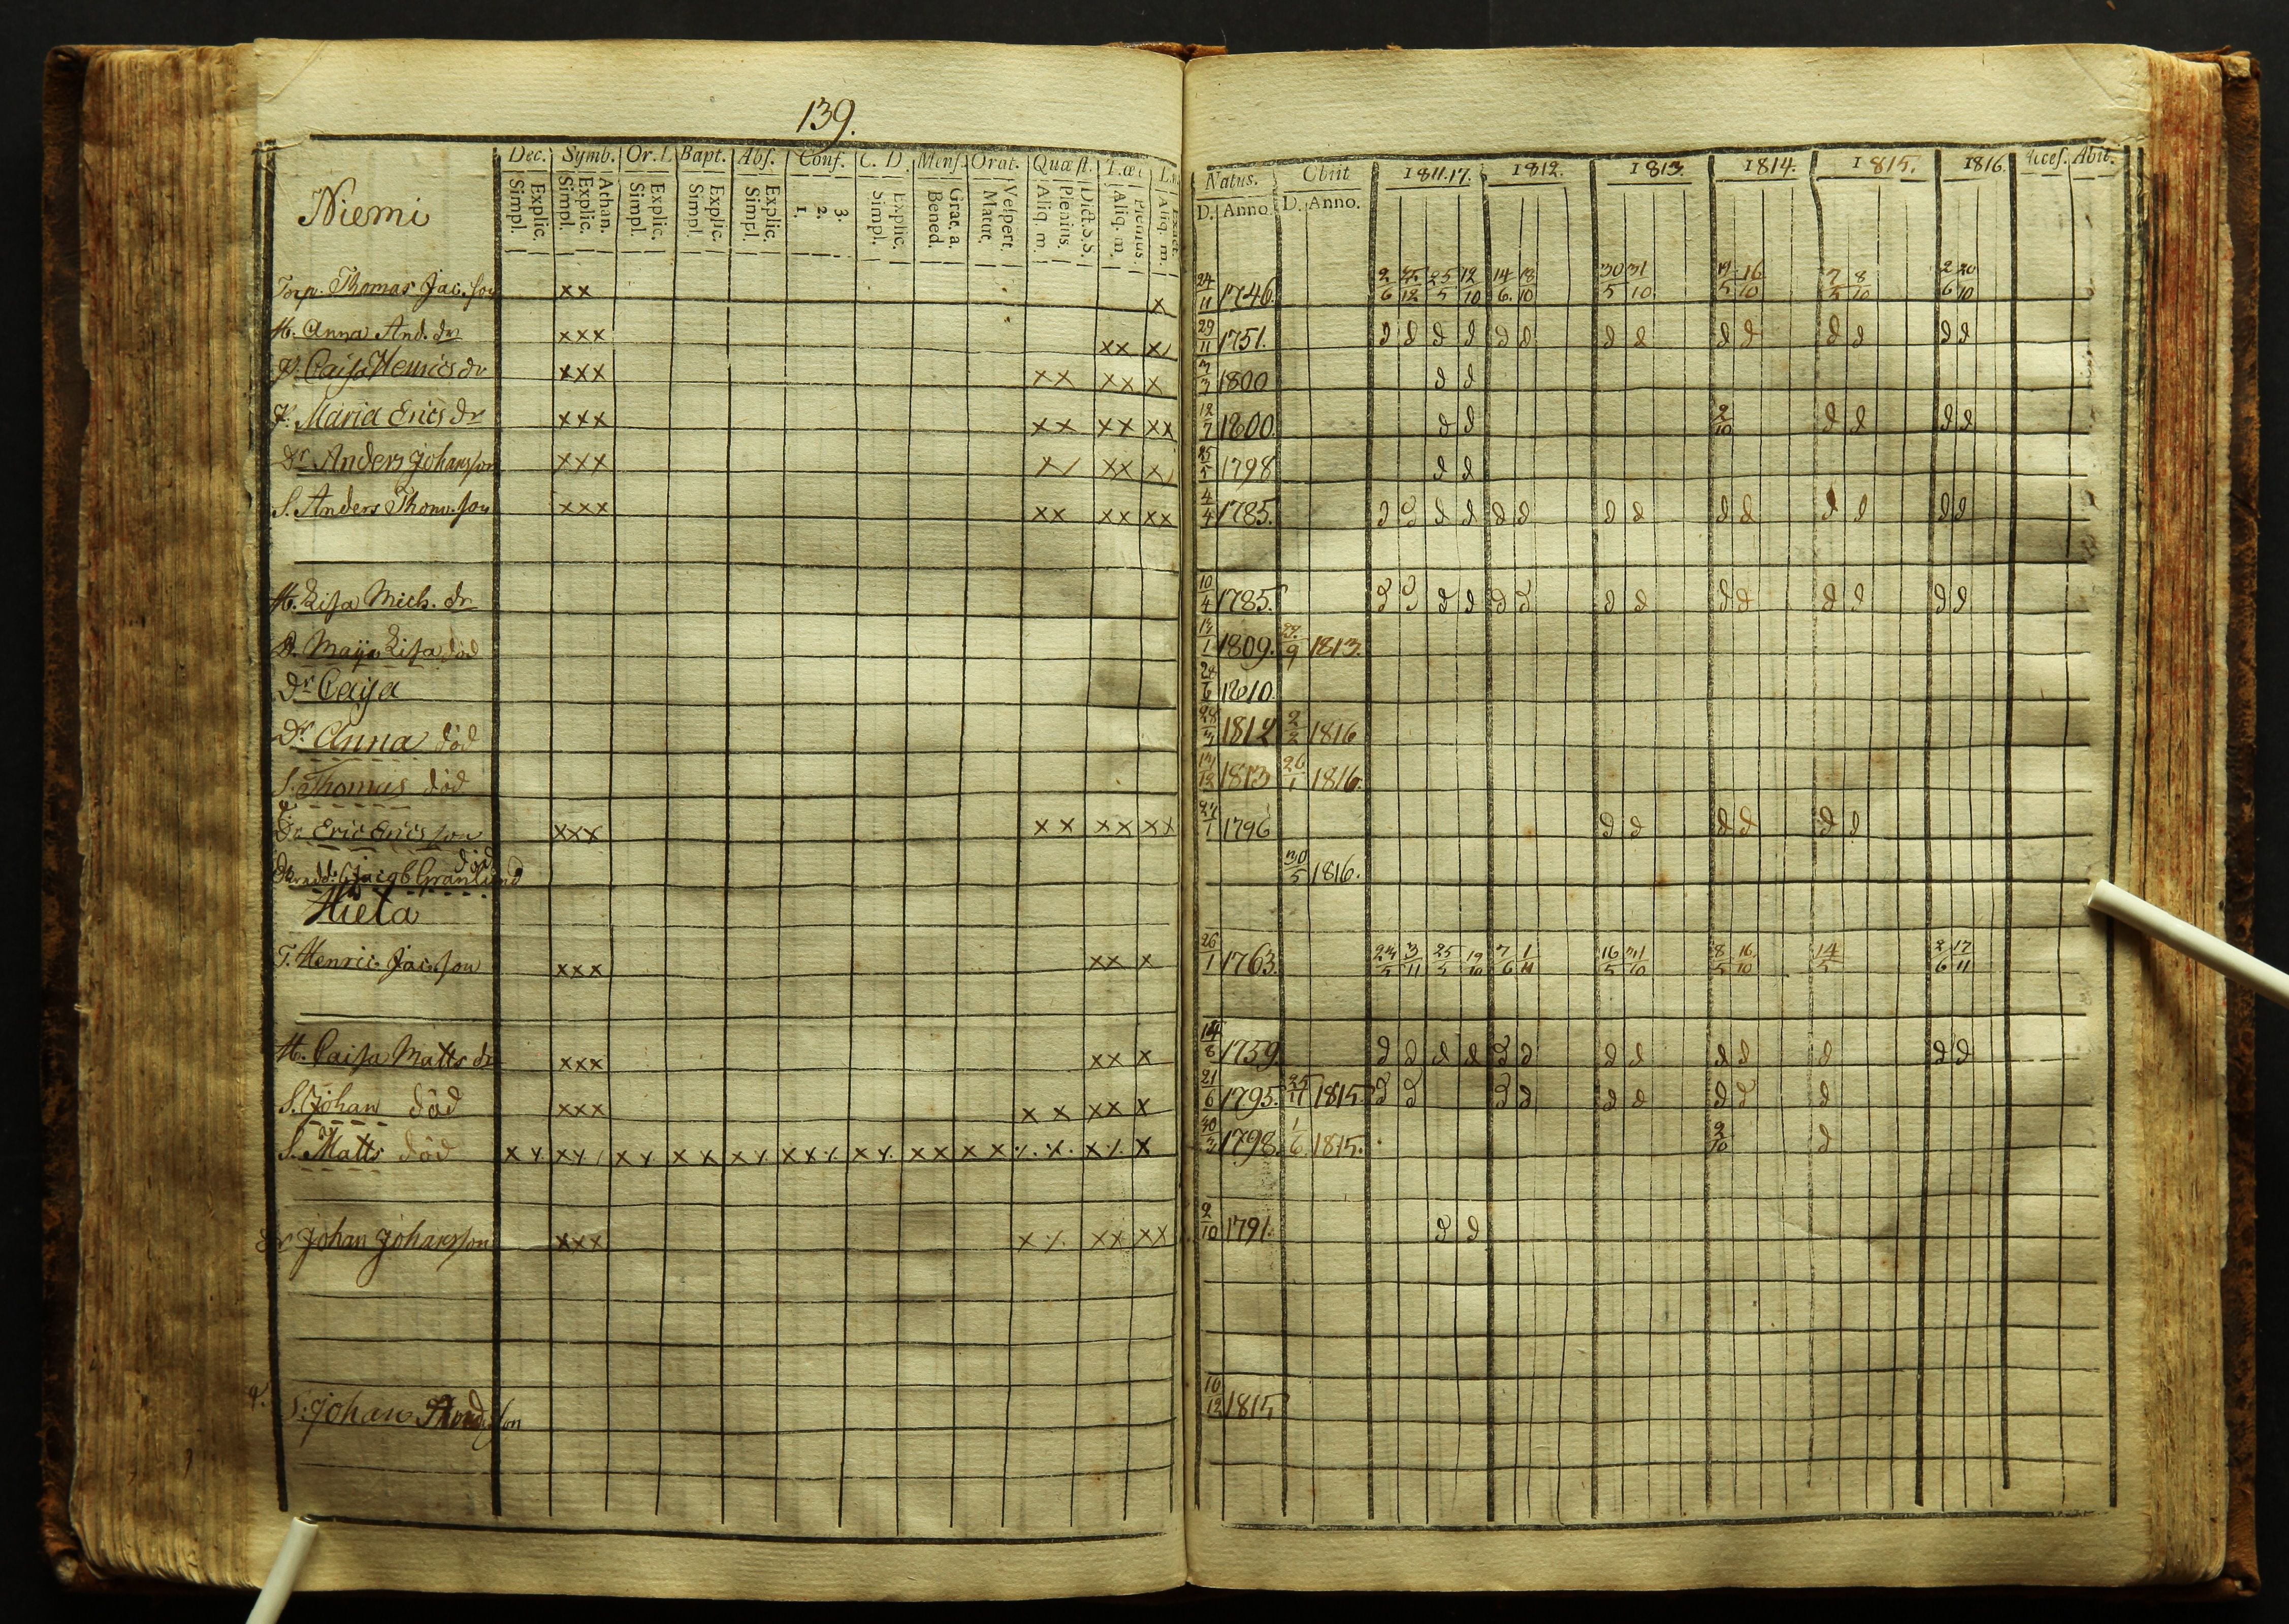 139.
Niemi
Dec. Symb. Or. Bapt. Abs. Conf. C. D. Mens. Orat. Quæst.
Explic. Simpl. Athan. Explic. Simpl. Explic. Simpl. Explic. Simpl. Explic. Simpl. 3. 2. 1. Explic. Simpl. Grat. a. Bened. Vespert. Matut. Dict. S. S. Plenius. Aliq. m. Plenius. Aliq. m. Aliq. m.
Natus. Obiit 1811.17. 1812. 1813. 1814. 1815. 1816. Acces. Abit.
D. Anno. D. Anno.
Torp. Thomas Jac. son xx x 24/11 1746. 2/6 12 25/5 12/10 14/6 18/10 30/5 31/10 5 16/10 7/5 8/10 2/6 20/10
H. Anna And. dr xxx xx x 29/11 1751. d d d d d d d d d d d d d d
P. Caisa Henrics dr xxx xx xx x 3 1800 d d
P. Maria Erics dr xxx xx xx xx 12/7 1800. d d 2/10 d d d d
Dr Anders Johansson xxx x xx x 25/5 1798 d d
S. Anders Thom. son xxx xx xx xx 4/4 1785. d d d d d d d d d d d d d d
H. Lisa Mich. dr 10/4 1785. d d d d d d d d d d d d d d
D. Maija Lisa död 13/1 1809. 9 1813.
Dr Caisa 28/6 1810.
Dr Anna död 28/3 1812 2/2 1816
S. Thomas död 12 1813 26/1 1816.
Dr Eric Erics son xxx xx xx xx 1 1796 d d d d d d
Jacob Granlund död 30/5 1816.
Hieta
T. Henric Jac. son xxx xx x 26/1 1763. 24/5 3/11 25/5 19/10 7/6 1/11 16/5 31/10 8/5 16/10 14/5 2/6 17/11
H. Caisa Matts dr xxx xx x 14/8 1759 d d d d d d d d d d d d d
S. Johan död xxx x x xx x 21/6 1795. 11 1815. d d d d d d d d d
S. Matts död 30/3 1798. 1/6 1815. 2/10 d
Dr Johan Johansson xxx xx xx xx 2/10 1791. d d
S. Johan And. son 10/12 1815